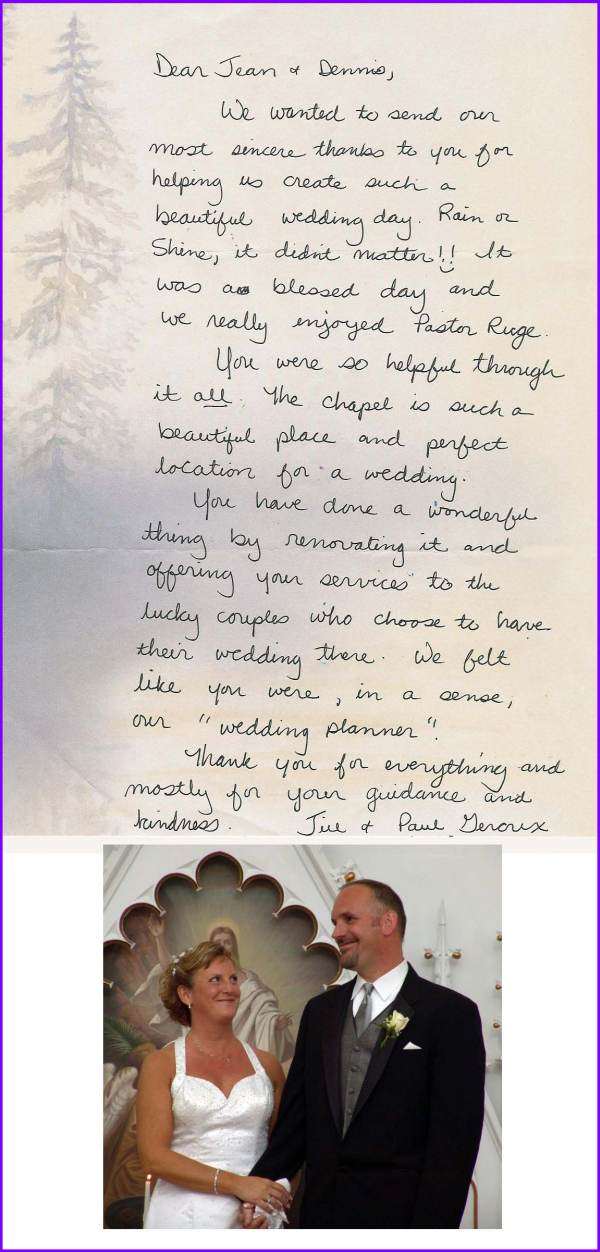 Dear Jean & Dennis,
We wanted to send our
most sincere thanks to you for
helping us create such a
beautiful wedding day. Rain or
Shine, it didn't matter!! It
was a blessed day and
we really enjoyed Pastor Ruge.
You were so helpful through
it all. The chapel is such a
beautiful place and perfect
location for a wedding.
You have done a wonderful
thing by renovating it and
offering your services to the
lucky couples who choose to have
their wedding there. We felt
like you were, in a sense,
our "wedding planner"!
Thank you for everything and
mostly for your guidance and
kindness. Jill & Paul Geroux